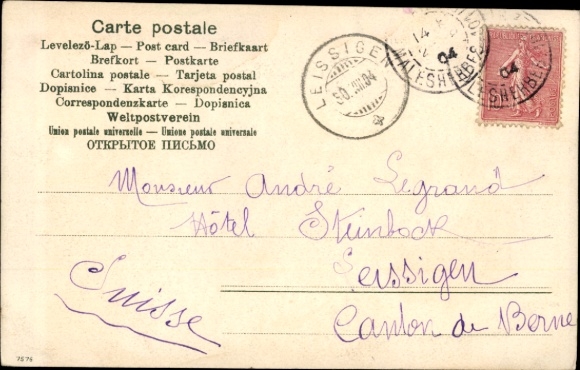 Carte postale
Levelező-Lap — Post card — Briefkaart
Brefkort — Postkarte
Cartolina postale — Tarjeta postal
Dopisnice — Karta Korespondencyjna
Correspondenzkarte — Dopisnica
Weltpostverein
Union postale universelle — Unione postale universale
ОТКРЫТОЕ ПИСЬМО
LEISSIGEN
04
MALESHERBES
04
Monsieur André Legrand
Hôtel Steinbock
Leissigen
Suisse
Canton de Berne
7576